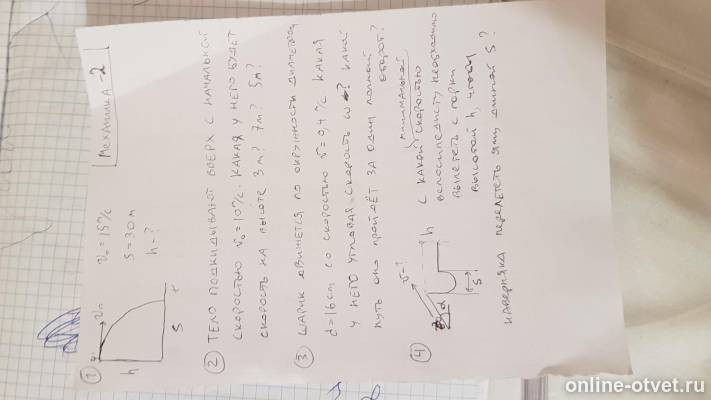 Механика-2
① v₀ = 15 м/с
S = 30 м
h - ?
h
S
② Тело подкидывают вверх с начальной
скоростью v₀ = 10 м/с. Какая у него будет
скорость на высоте 3 м? 7 м? 5 м?
③ Шарик движется по окружности диаметром
d = 16 см со скоростью v = 0,4 м/с. Какая
у него угловая скорость ω? Какой
путь оно пройдёт за один полный
оборот?
④ С какой минимальной скоростью
велосипедисту необходимо
вылететь с горки
высотой h, чтобы
наверняка перелететь яму длиной S?
v - ?
h
α
S
online-otvet.ru